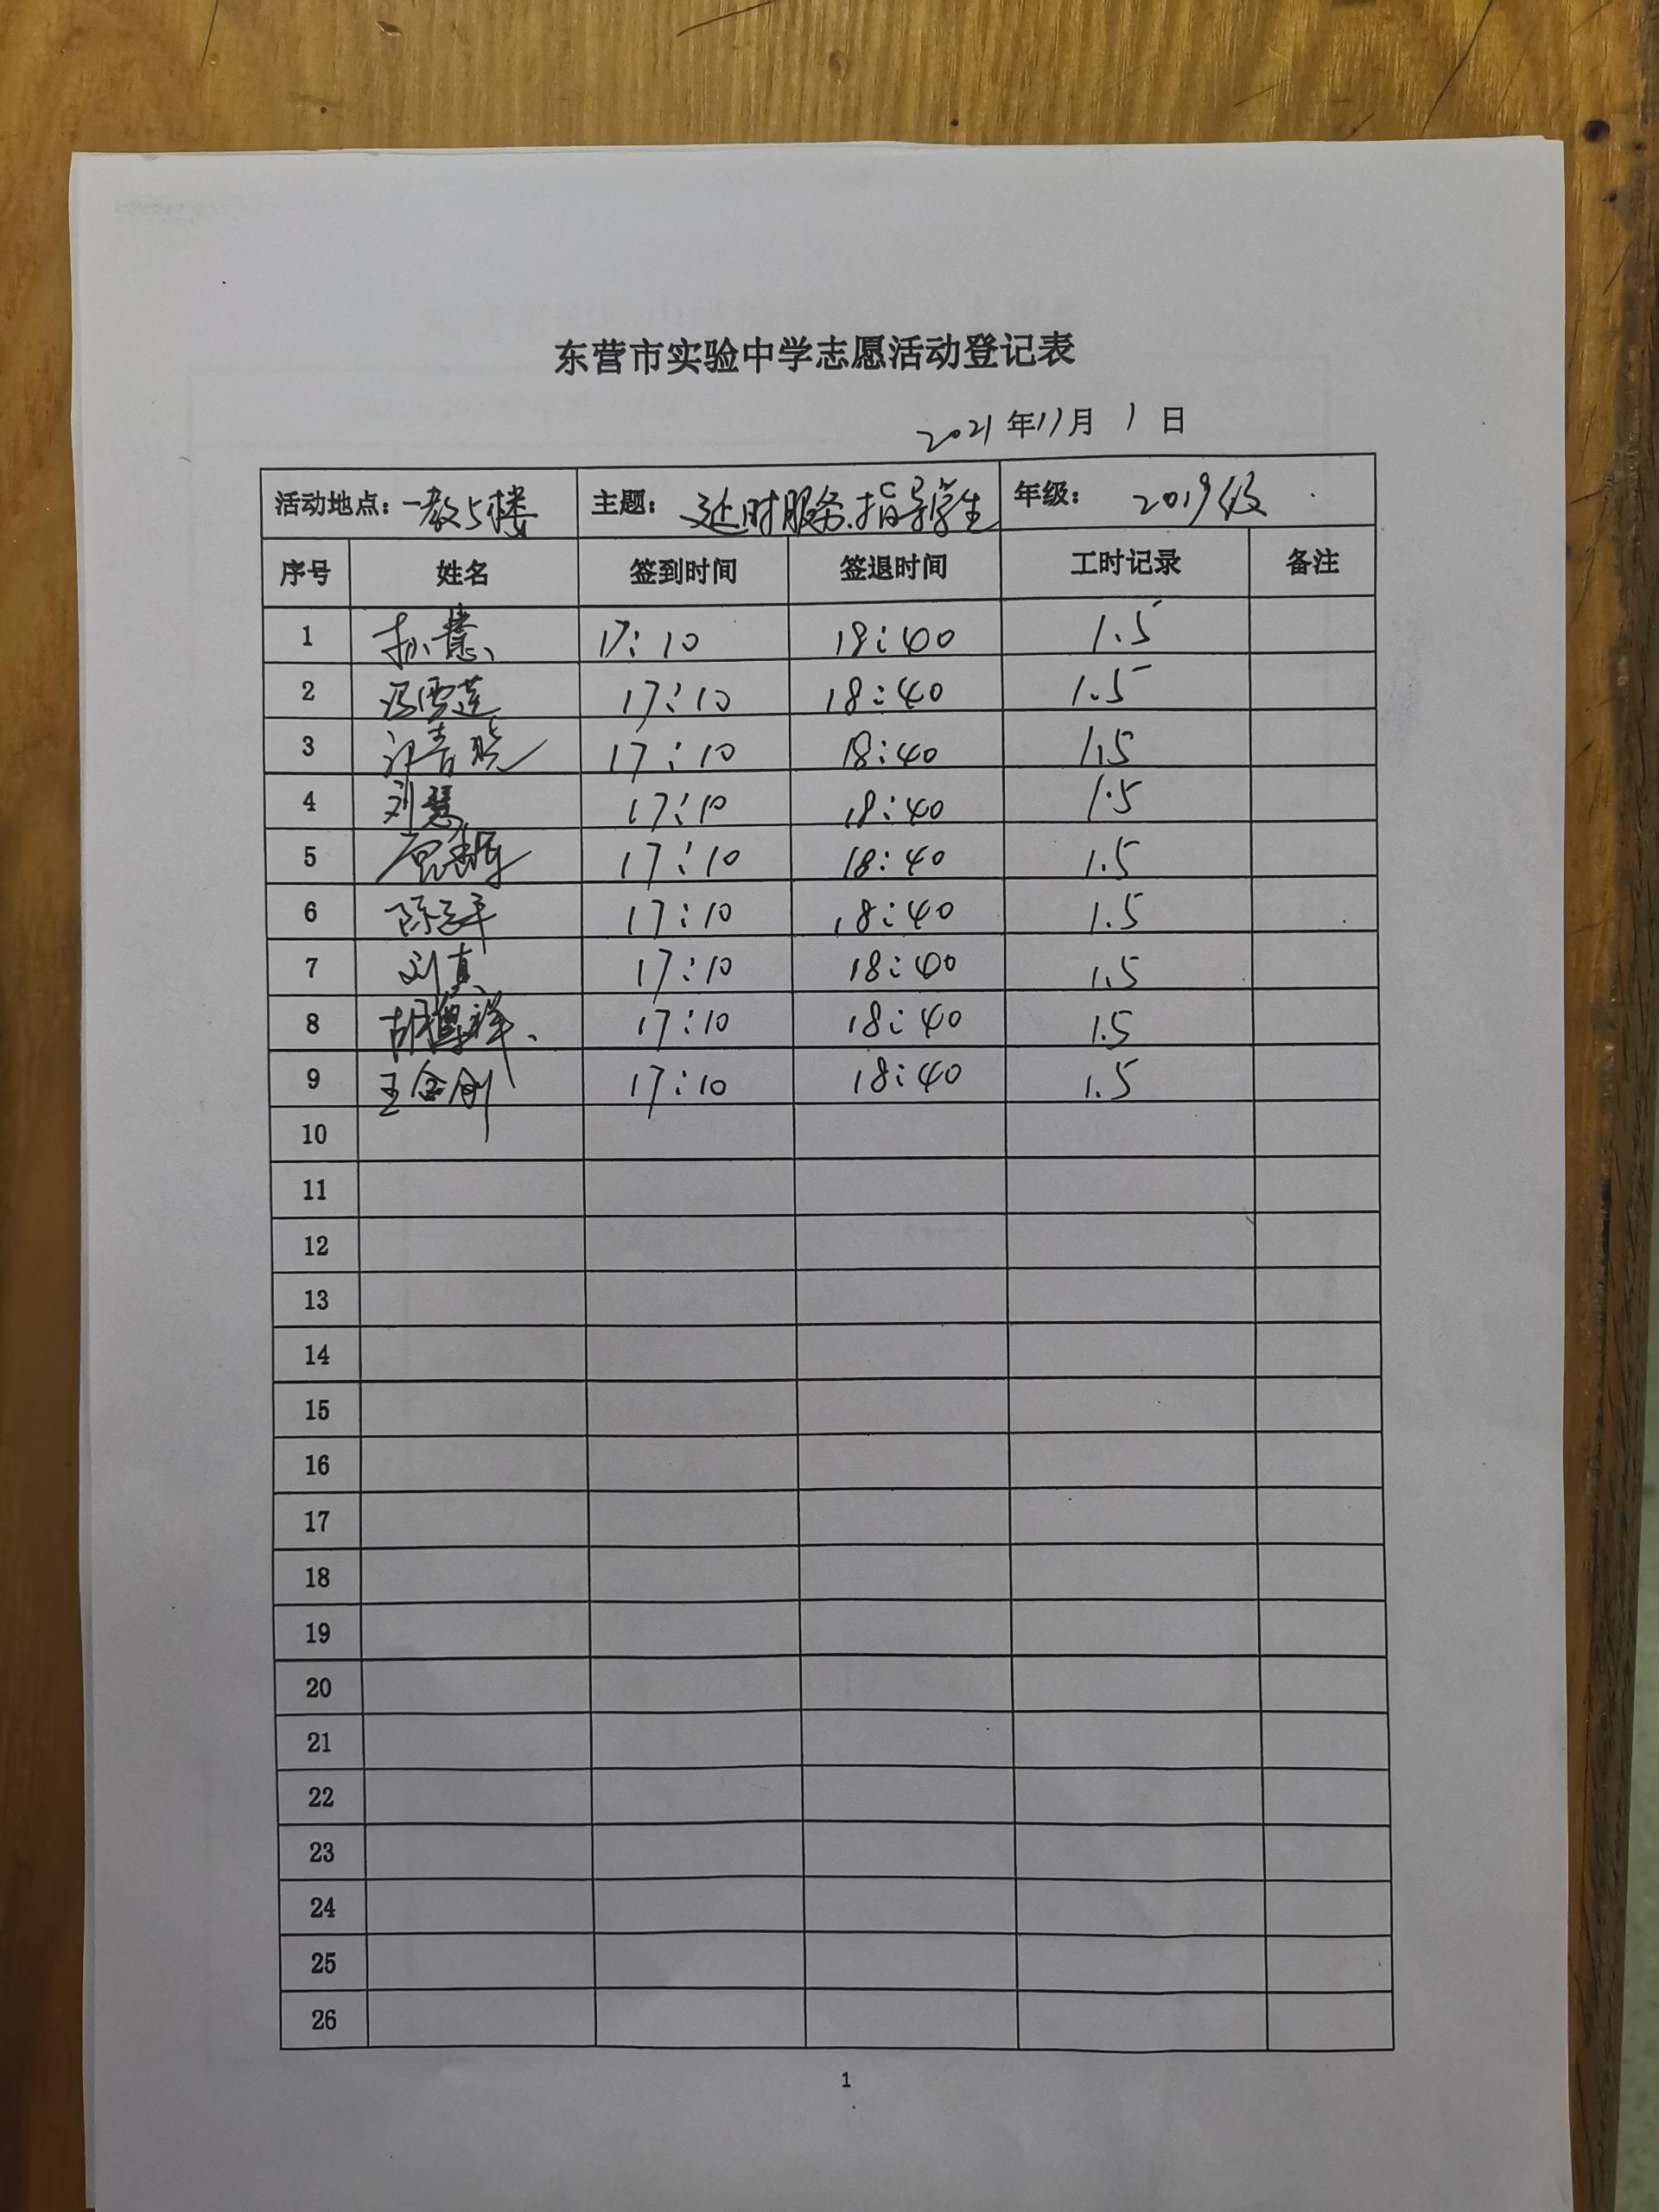 东营市实验中学志愿活动登记表
2021年11月1日
活动地点：一教5楼 主题：延时服务.指导学生 年级：2019级
序号 姓名 签到时间 签退时间 工时记录 备注
1 孙慧 17:10 18:40 1.5
2 冯雪莲 17:10 18:40 1.5
3 许青晓 17:10 18:40 1.5
4 刘慧 17:10 18:40 1.5
5 17:10 18:40 1.5
6 17:10 18:40 1.5
7 刘真 17:10 18:40 1.5
8 17:10 18:40 1.5
9 王金刚 17:10 18:40 1.5
10
11
12
13
14
15
16
17
18
19
20
21
22
23
24
25
26
1